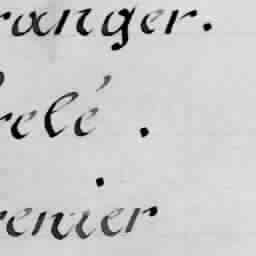 ranger.
relé.
renier